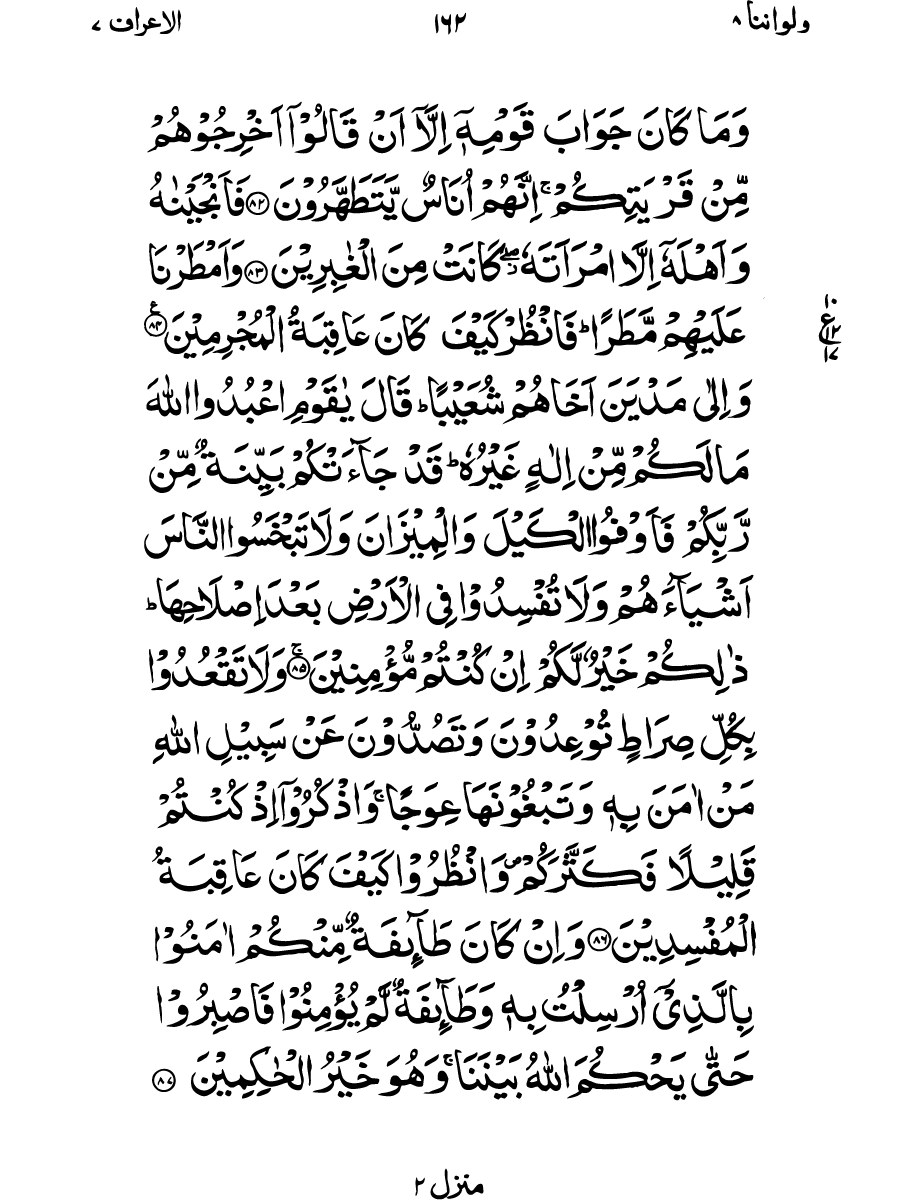 ولواننا ۸
۱۶۲
الاعراف ۷
وَمَا كَانَ جَوَابَ قَوْمِهٖۤ اِلَّاۤ اَنْ قَالُوْۤا اَخْرِجُوْهُمْ
مِّنْ قَرْيَتِكُمْ ۚ اِنَّهُمْ اُنَاسٌ يَّتَطَهَّرُوْنَ ﴿۸۲﴾ فَاَنْجَيْنٰهُ
وَاَهْلَهٗۤ اِلَّا امْرَاَتَهٗ ۖ كَانَتْ مِنَ الْغٰبِرِيْنَ ﴿۸۳﴾ وَاَمْطَرْنَا
عَلَيْهِمْ مَّطَرًا ؕ فَانْظُرْ كَيْفَ كَانَ عَاقِبَةُ الْمُجْرِمِيْنَ ﴿۸۴﴾ ع
۱۰
ع
۱۲
۱۷
وَاِلٰى مَدْيَنَ اَخَاهُمْ شُعَيْبًا ؕ قَالَ يٰقَوْمِ اعْبُدُوا اللّٰهَ
مَا لَكُمْ مِّنْ اِلٰهٍ غَيْرُهٗ ؕ قَدْ جَآءَتْكُمْ بَيِّنَةٌ مِّنْ
رَّبِّكُمْ فَاَوْفُوا الْكَيْلَ وَالْمِيْزَانَ وَلَا تَبْخَسُوا النَّاسَ
اَشْيَآءَهُمْ وَلَا تُفْسِدُوْا فِى الْاَرْضِ بَعْدَ اِصْلَاحِهَا ؕ
ذٰلِكُمْ خَيْرٌ لَّكُمْ اِنْ كُنْتُمْ مُّؤْمِنِيْنَ ﴿۸۵﴾ ۚ وَلَا تَقْعُدُوْا
بِكُلِّ صِرَاطٍ تُوْعِدُوْنَ وَتَصُدُّوْنَ عَنْ سَبِيْلِ اللّٰهِ
مَنْ اٰمَنَ بِهٖ وَتَبْغُوْنَهَا عِوَجًا ۚ وَاذْكُرُوْۤا اِذْ كُنْتُمْ
قَلِيْلًا فَكَثَّرَكُمْ ۪ وَانْظُرُوْا كَيْفَ كَانَ عَاقِبَةُ
الْمُفْسِدِيْنَ ﴿۸۶﴾ وَاِنْ كَانَ طَآىِٕفَةٌ مِّنْكُمْ اٰمَنُوْا
بِالَّذِىْۤ اُرْسِلْتُ بِهٖ وَطَآىِٕفَةٌ لَّمْ يُؤْمِنُوْا فَاصْبِرُوْا
حَتّٰى يَحْكُمَ اللّٰهُ بَيْنَنَا ۚ وَهُوَ خَيْرُ الْحٰكِمِيْنَ ﴿۸۷﴾
منزل ۲